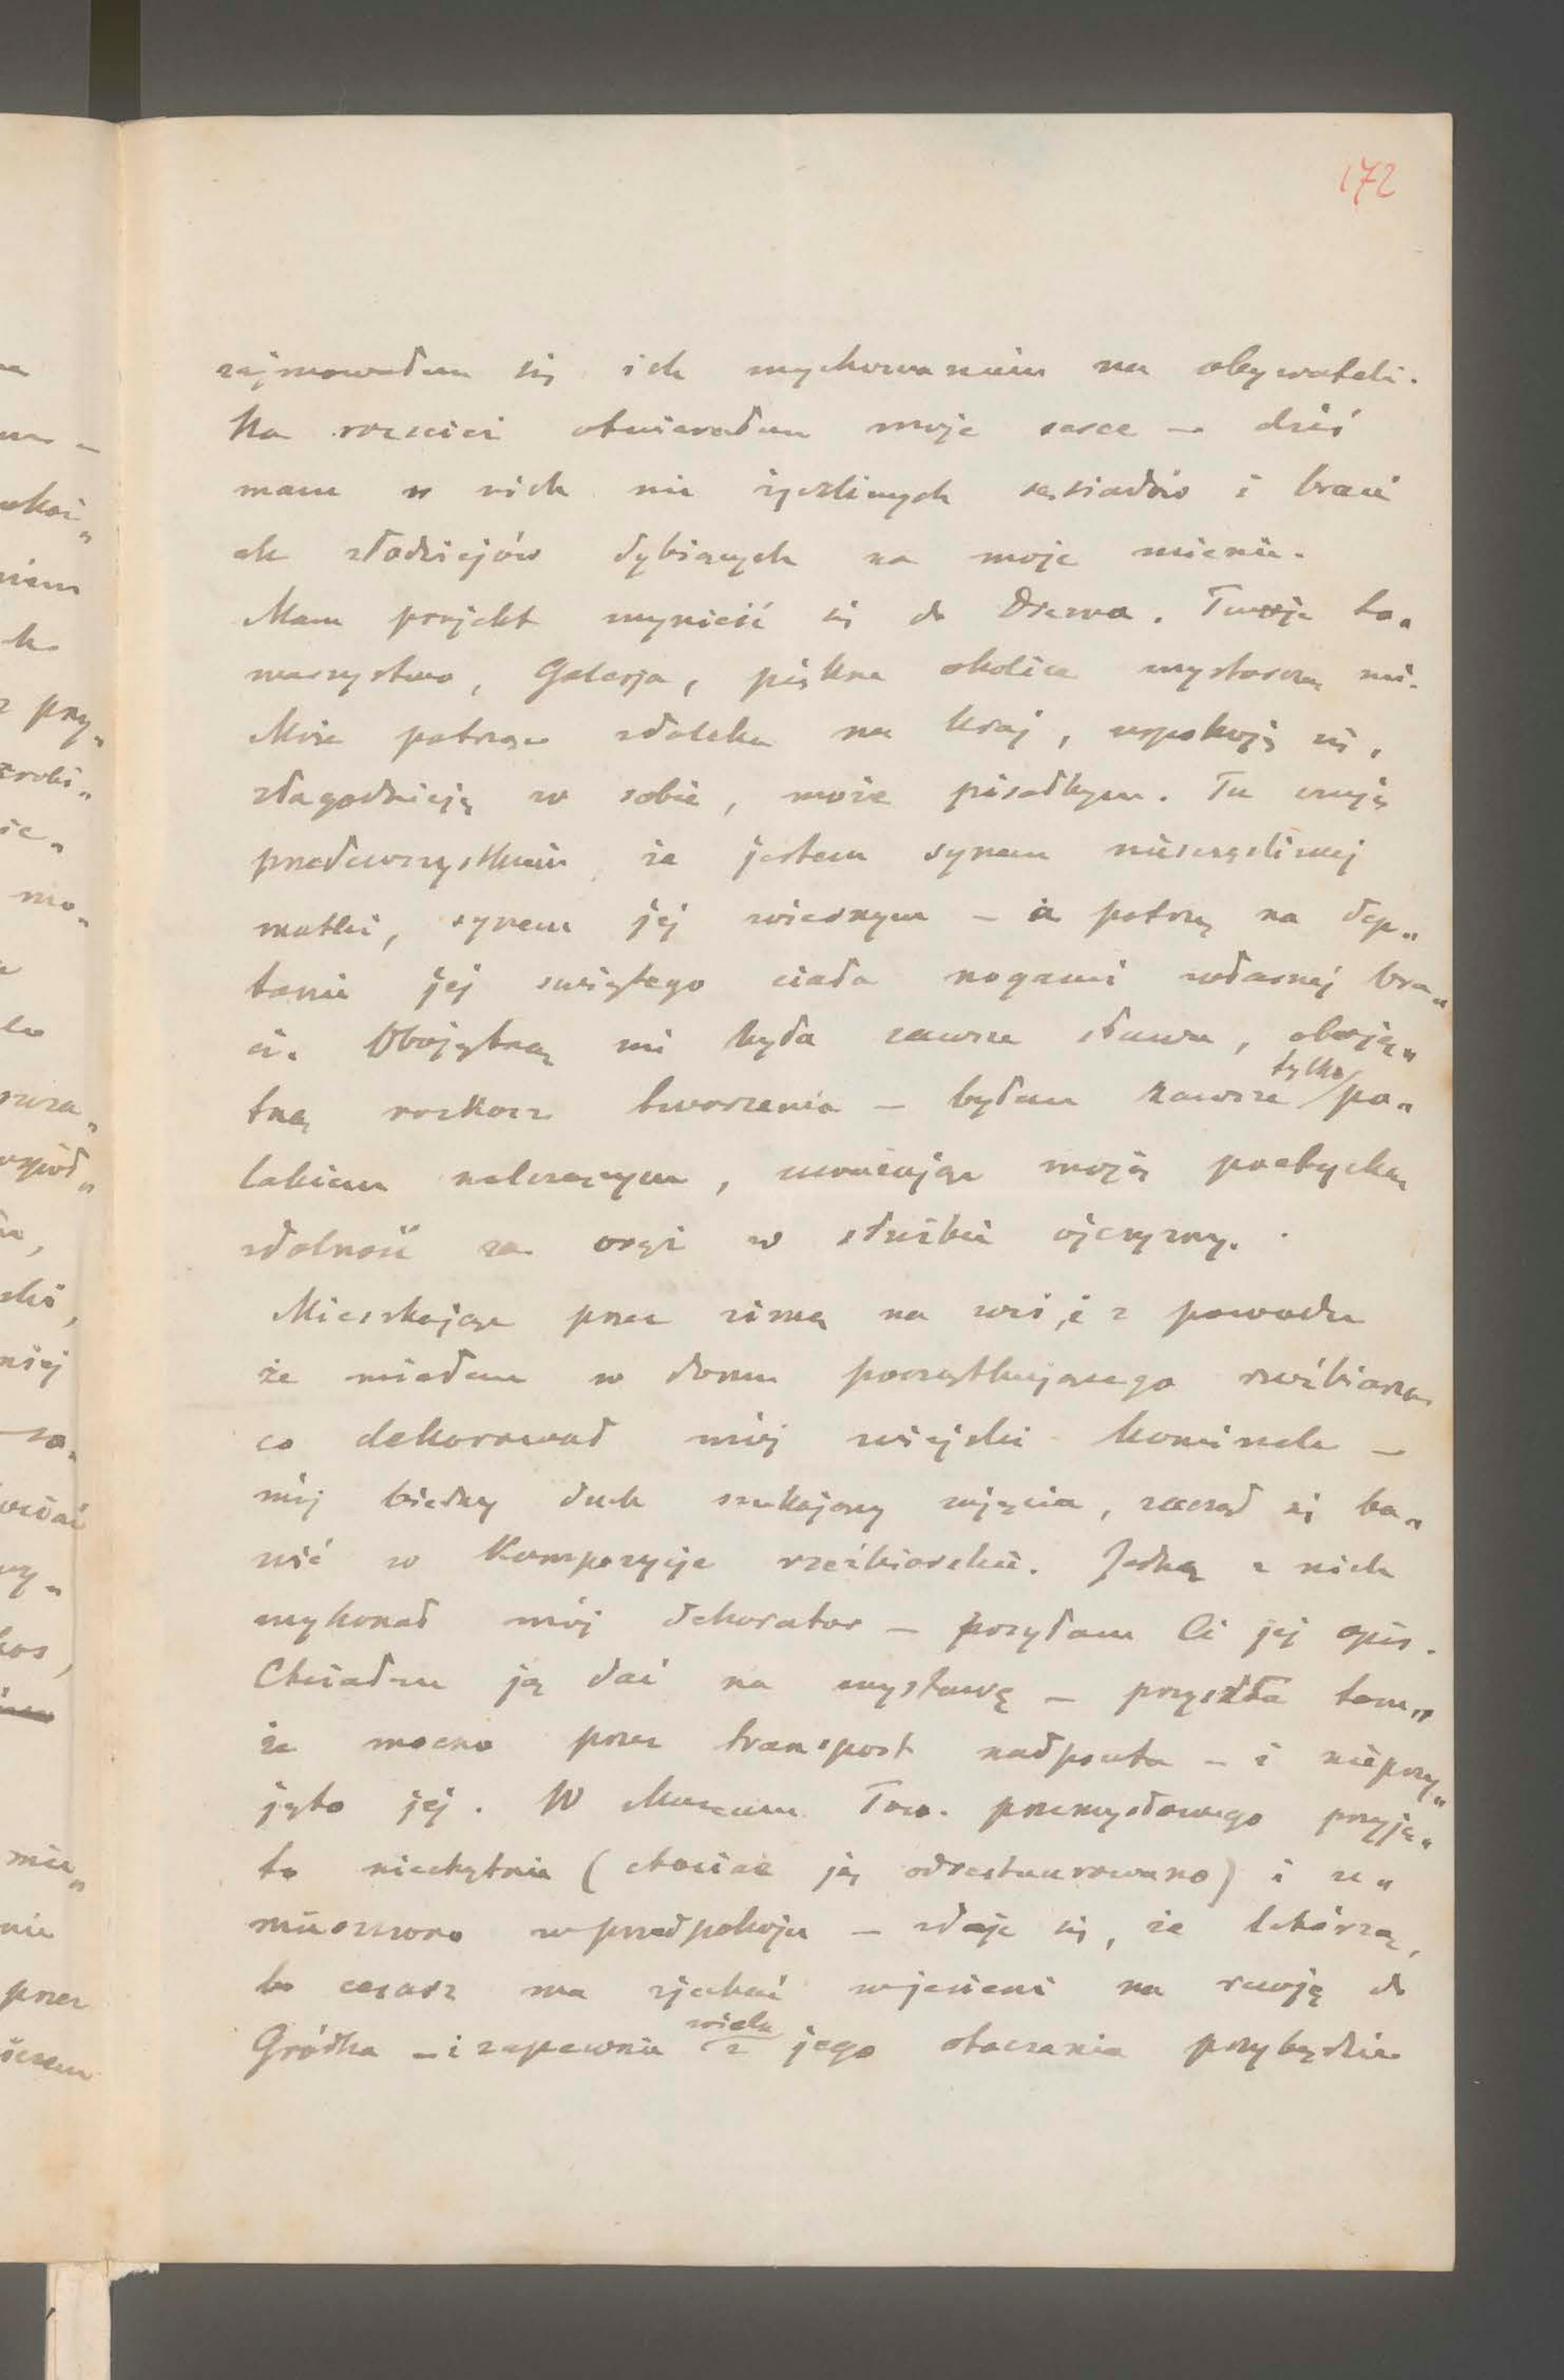 172
zajmowałem się ich wychowaniem na obywateli.
Na rozcież otwierałem moje serce — dziś
mam w nich nie życzliwych sąsiadów i braci
ale złodziejów dybiących na moje mienie.
Mam projekt wynieść się do Drezna. Twoje to„
warzystwo, Galerja, piękna okolica wystarczą mi.
Może patrząc zdaleka na kraj, uspokoję się,
złagodnieję w sobie, może pisałbym. Tu czuję
przedewszystkiem że jestem synem nieszczęśliwej
matki, synem jej wiernym — a patrzę na dep„
tanie jej świętego ciała nogami własnej bra„
ci. Obojętną mi była zawsze sława, oboję„
tną rozkosz tworzenia — byłem zawsze tylko po„
lakiem walczącym, uważając moją poetycką
zdolność za oręż w służbie ojczyzny.
Mieszkając przez zimę na wsi, i z powodu
że miałem w domu początkującego rzeźbiarza
co dekorował mój wiejski kominek —
mój biedny duch szukający zajęcia, zaczął się ba„
wić w kompozycje rzeźbiarskie. Jedną z nich
wykonał mój dekorator — posyłam Ci jej opis.
Chciałem ją dać na wystawę — przyszła tam„
że mocno przez transport nadpsuta — i nieprzy„
jęto jej. W Muzeum Tow. przemysłowego przyję„
to niechętnie (chociaż ją odrestaurowano) i u„
mieszczono w przedpokoju — zdaje się, że tchórzą,
bo cesarz ma zjechać w jesieni na rewję do
Gródka — i zapewnie wielu z jego otoczenia przybędzie